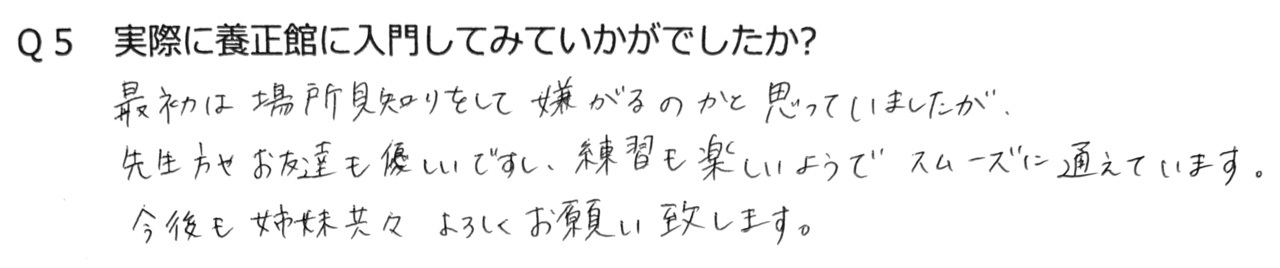 Q5 実際に養正館に入門してみていかがでしたか?
最初は場所見知りをして嫌がるのかと思っていましたが、
先生方やお友達も優しいですし、練習も楽しいようでスムーズに通えています。
今後も姉妹共々よろしくお願い致します。